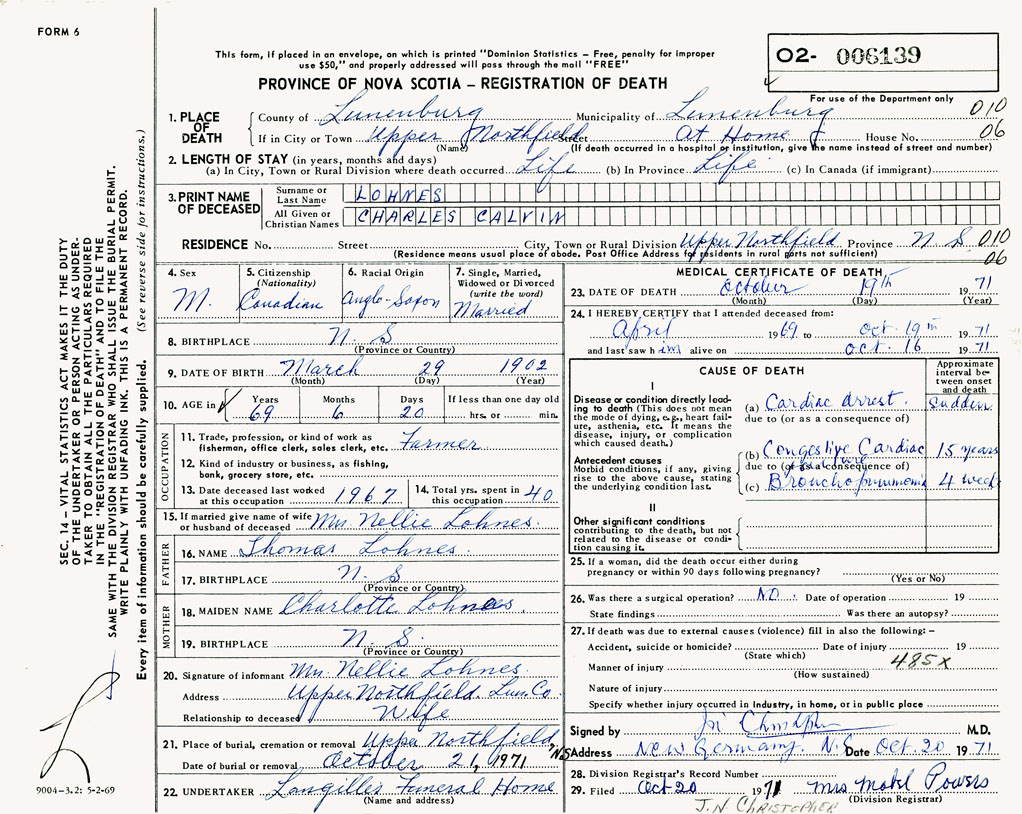 FORM 6
This form, if placed in an envelope, on which is printed "Dominion Statistics – Free, penalty for improper
use $50," and properly addressed will pass through the mail "FREE"
02- 006139
PROVINCE OF NOVA SCOTIA – REGISTRATION OF DEATH
For use of the Department only
1. PLACE OF DEATH
County of Lunenburg Municipality of Lunenburg 010
If in City or Town Upper Northfield Street At Home House No. 06
(Name) (If death occurred in a hospital or institution, give the name instead of street and number)
2. LENGTH OF STAY (in years, months and days)
(a) In City, Town or Rural Division where death occurred Life (b) In Province Life (c) In Canada (if immigrant)
3. PRINT NAME OF DECEASED
Surname or Last Name LOHNES
All Given or Christian Names CHARLES CALVIN
RESIDENCE No. Street City, Town or Rural Division Upper Northfield Province N S 010
(Residence means usual place of abode. Post Office Address for residents in rural parts not sufficient) 06
4. Sex
M.
5. Citizenship
(Nationality)
Canadian
6. Racial Origin
Anglo-Saxon
7. Single, Married,
Widowed or Divorced
(write the word)
Married
8. BIRTHPLACE N. S
(Province or Country)
9. DATE OF BIRTH March 29 1902
(Month) (Day) (Year)
10. AGE in
Years Months Days If less than one day old
69 6 20 hrs. or min.
OCCUPATION
11. Trade, profession, or kind of work as
fisherman, office clerk, sales clerk, etc. Farmer
12. Kind of industry or business, as fishing,
bank, grocery store, etc.
13. Date deceased last worked
at this occupation 1967
14. Total yrs. spent in
this occupation 40
15. If married give name of wife
or husband of deceased Mrs Nellie Lohnes.
FATHER
16. NAME Thomas Lohnes.
17. BIRTHPLACE N. S
(Province or Country)
MOTHER
18. MAIDEN NAME Charlotte Lohnes.
19. BIRTHPLACE N. S.
(Province or Country)
20. Signature of informant Mrs Nellie Lohnes
Address Upper Northfield. Lun. Co.
Relationship to deceased Wife
21. Place of burial, cremation or removal Upper Northfield, N.S
Date of burial or removal October 21, 1971
22. UNDERTAKER Langilles Funeral Home
(Name and address)
MEDICAL CERTIFICATE OF DEATH
23. DATE OF DEATH October 19th 1971
(Month) (Day) (Year)
24. I HEREBY CERTIFY that I attended deceased from:
April 1969 to Oct. 19th 1971
and last saw him alive on Oct. 16 1971
CAUSE OF DEATH
Approximate
interval be-
tween onset
and death
I
Disease or condition directly lead-
ing to death (This does not mean
the mode of dying, e.g., heart fail-
ure, asthenia, etc. It means the
disease, injury, or complication
which caused death.)
(a) Cardiac arrest. Sudden
due to (or as a consequence of)
Antecedent causes
Morbid conditions, if any, giving
rise to the above cause, stating
the underlying condition last.
(b) Congestive Cardiac 15 years
due to (or as a consequence of)
(c) Bronchopneumonia 4 week
II
Other significant conditions
contributing to the death, but not
related to the disease or condi-
tion causing it.
25. If a woman, did the death occur either during
pregnancy or within 90 days following pregnancy?
(Yes or No)
26. Was there a surgical operation? NO. Date of operation 19
State findings Was there an autopsy?
27. If death was due to external causes (violence) fill in also the following: –
Accident, suicide or homicide? Date of injury 19
(State which) 485X
Manner of injury
(How sustained)
Nature of injury
Specify whether injury occurred in industry, in home, or in public place
Signed by M.D.
Address New Germany. N.S Date Oct. 20 1971
28. Division Registrar's Record Number
29. Filed Oct 20 1971 Mrs Mabel Powers
(Division Registrar)
J.N CHRISTOPHER
SEC. 14 – VITAL STATISTICS ACT MAKES IT THE DUTY
OF THE UNDERTAKER OR PERSON ACTING AS UNDER-
TAKER TO OBTAIN ALL THE PARTICULARS REQUIRED
IN THE "REGISTRATION OF DEATH" AND TO FILE THE
SAME WITH THE DIVISION REGISTRAR WHO SHALL ISSUE THE BURIAL PERMIT.
WRITE PLAINLY WITH UNFADING INK. THIS IS A PERMANENT RECORD.
Every item of information should be carefully supplied. (See reverse side for instructions.)
9004-3.2: 5-2-69